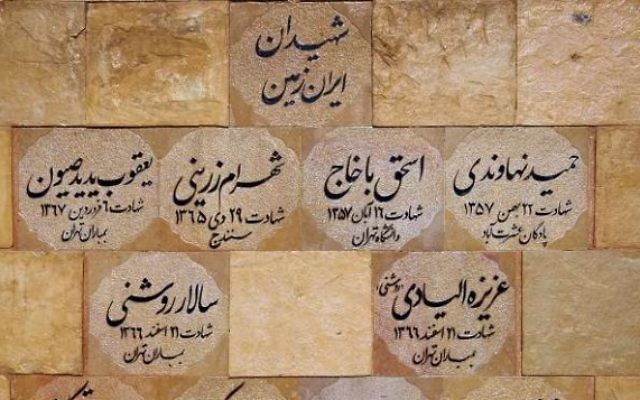 شهیدان
ایران زمین
حمید نهاوندی
شهادت ۲۲ بهمن ۱۳۵۷
پادگان عشرت آباد
اسحق باخاج
شهادت ۱۶ آبان ۱۳۵۷
دانشگاه تهران
شهرام زرینی
شهادت ۲۹ دی ۱۳۶۵
سنندج
یعقوب یدیدصیون
شهادت ۶ فروردین ۱۳۶۷
بمباران تهران
عزیزه الیادی (روشنی)
شهادت ۲۱ اسفند ۱۳۶۶
بمباران تهران
سالار روشنی
شهادت ۲۱ اسفند ۱۳۶۶
بمباران تهران